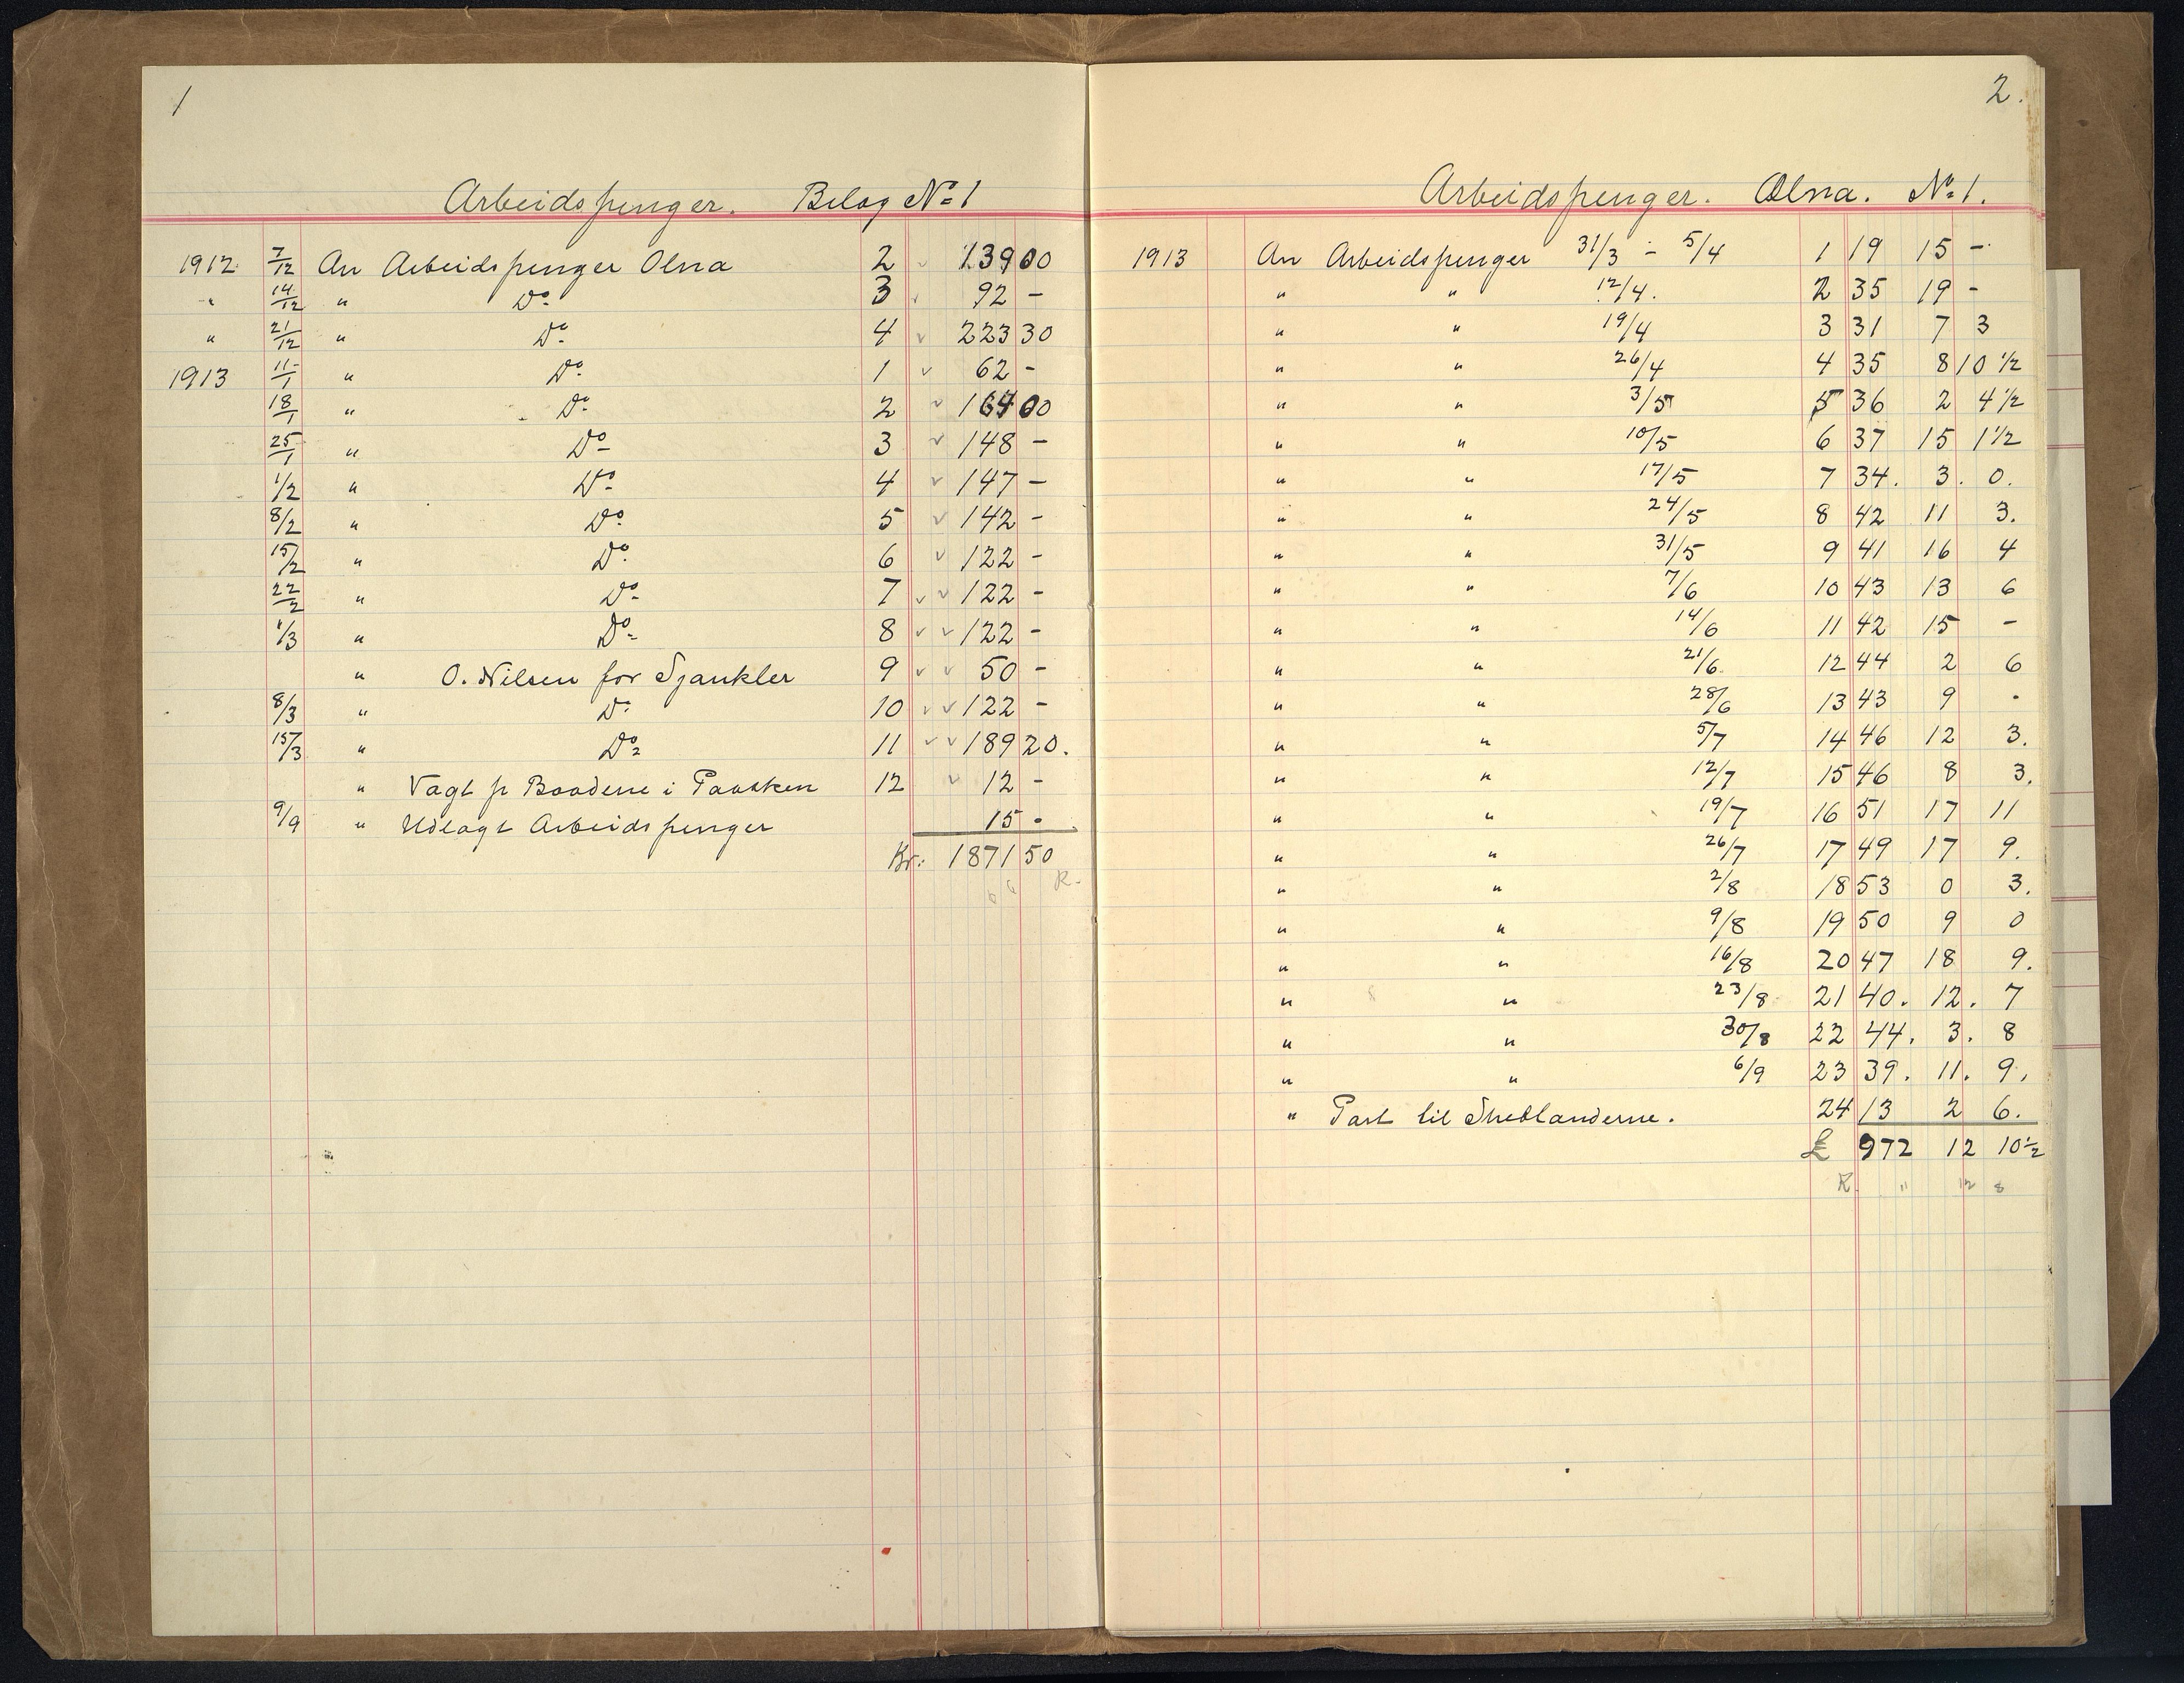 1
Arbeidspenger. Bilag No 1
1912 7/12 An Arbeidspenger Olna 2 139 00
" 14/12 " Do 3 92 -
" 21/12 " Do 4 223 30
1913 11/1 " Do 1 62 -
18/1 " Do 2 164 00
25/1 " Do 3 148 -
1/2 " Do 4 147 -
8/2 " Do 5 142 -
15/2 " Do 6 122 -
22/2 " Do 7 122 -
1/3 " Do 8 122 -
" O. Nilsen for Sjaukler 9 50 -
8/3 " Do 10 122 -
15/3 " Do 11 189 20.
" Vagt pr Baadene i Paasken 12 12 -
9/9 " Udlagt Arbeidspenger 15 -
Kr: 1871 50
R.
2.
Arbeidspenger. Olna. No 1.
1913 An Arbeidspenger 31/3 - 5/4 1 19 15 -
" " 12/4. 2 35 19 -
" " 19/4 3 31 7 3
" " 26/4 4 35 8 10 1/2
" " 3/5 5 36 2 4 1/2
" " 10/5 6 37 15 1 1/2
" " 17/5 7 34. 3. 0.
" " 24/5 8 42 11 3.
" " 31/5 9 41 16 4
" " 7/6 10 43 13 6
" " 14/6 11 42 15 -
" " 21/6 12 44 2 6
" " 28/6 13 43 9 -
" " 5/7 14 46 12 3.
" " 12/7 15 46 8 3.
" " 19/7 16 51 17 11
" " 26/7 17 49 17 9.
" " 2/8 18 53 0 3.
" " 9/8 19 50 9 0
" " 16/8 20 47 18 9.
" " 23/8 21 40. 12. 7
" " 30/8 22 44. 3. 8
" " 6/9 23 39. 11. 9.
" Part til Shetlanderne. 24 13 2 6.
£ 972 12 10 1/2
R " 12 8